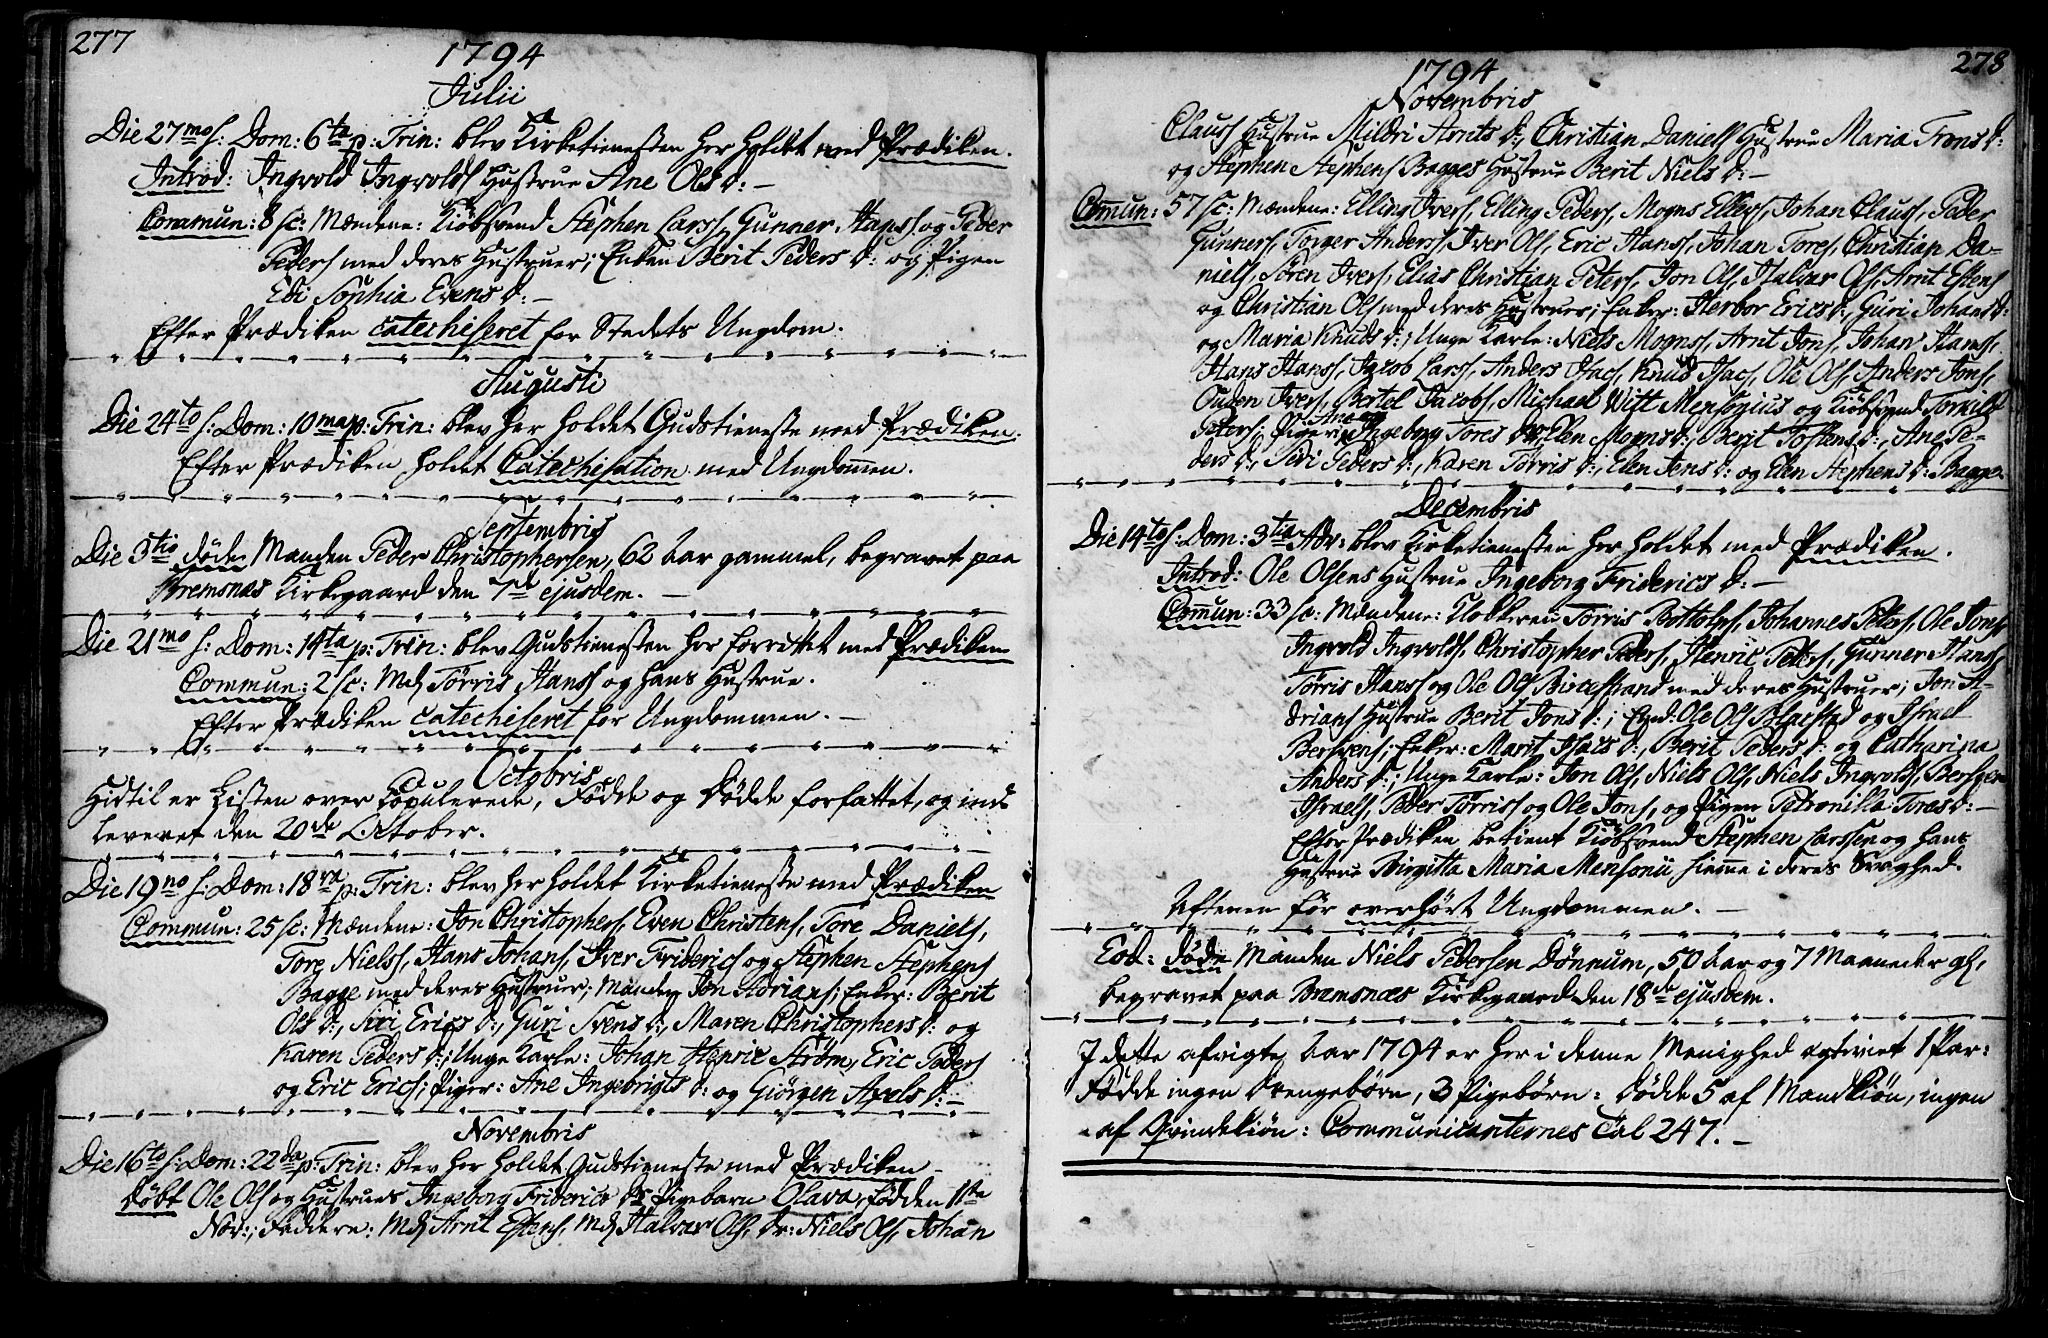 277
1794
Julii
Die 27mo s: Dom: 6ta p: Trin: blev Kirketienesten her holdet med Prædiken.
Introd: Ingvold Ingvolds Hustrue Ane Ols d: -
Commun: 8 sc: Mændene: Kiöbsvend Stephen Larss, Gunner Hanss og Peder
Peders med deres Hustruer; Enken Berit Peders d: og Pigen
Edi Sophia Evens d: -
Efter Prædiken catechiseret for Stedets Ungdom.
Augusti
Die 24to s: Dom: 10ma p: Trin: blev her holdet Gudstieneste med Prædiken.
Efter Prædiken holdet Catechisation med Ungdommen.
Septembris
Die 3tio døde Manden Peder Christophersen, 62 Aar gammel, begravet paa
Bremsnæs Kirkegaard den 7de ejusdem. -
Die 21mo s: Dom: 14ta p: Trin: blev Gudstienesten her forrettet med Prædiken
Commun: 2 sc: Md Törris Hanss og hans Hustrue.
Efter Prædiken catechiseret for Ungdommen. -
Octobris
Hidtil er Listen over Copulerede, Födde og Dödde forfattet, og ind-
leveret den 20de October.
Die 19no s: Dom: 18va p: Trin: blev her holdet Kirketieneste med Prædiken
Commun: 25 sc: Mændene: Jon Christophers, Even Christens, Tore Daniels,
Tore Nielss, Hans Johans, Iver Friderics og Stephen Stephens
Bagge med deres Hustruer; Manden Jon Adrians; Enker: Berit
Ols d:, Siri Erics d:, Guri Svens d:, Maren Christophers d: og
Karen Peders d:; Unge Karle: Johan Henric Ström, Eric Peders
og Eric Erics; Piger: Ane Ingebrigts d: og Giörgen Axels d: -
Novembris
Die 16to s: Dom: 22da p: Trin: blev her holdet Gudstieneste med Prædiken -
Döbt Ole Ols og Hustrues Ingeborg Friderics ds Pigebarn Olava, född den 1ste
Nov:; Faddere: Md Arnt Estens, Md Halvar Ols, Dr: Niels Ols, Johan
278
1794
Novembris
Clauss Hustrue Mildri Arnts d:, Christian Daniels Hustrue Maria Trons d:
og Stephen Stephens Bagges Hustrue Berit Niels d: -
Commun: 57 sc: Mændene: Elling Ivers, Elling Peders, Mogns Ellevs, Johan Clauss, Peder
Gunners, Torger Anderss, Iver Ols, Eric Hanss, Johan Tores, Christian Da-
niels, Sören Ivers, Elias Christian Peters, Jon Ols, Halvar Ols, Arnt Estens
og Christian Ols med deres Hustruer; Enker: Herbor Erics d:, Guri Johans d:
og Maria Knuds d:; Unge Karle: Niels Mognss, Arnt Jons, Johan Hanss,
Hans Hanss, Jacob Larss, Anders Isacs, Knud Isacs, Ole Ols, Anders Jons,
Ouden Ivers, Bertel Jacobs, Michael Witt Mensonius og Kiöbsvend Torkild
Peters; Piger: Ane og Ingeborg Tores dr, Elen Mogns d:, Berit Tostens d:, Ane Pe-
ders d:, Siri Peders d:, Karen Törris d:, Elen Jens d: og Elen Stephens d: Bagge.
Decembris
Die 14to s: Dom: 3tia Adv: blev Kirketienesten her holdet med Prædiken.
Introd: Ole Olsens Hustrue Ingeborg Friderics d: -
Commun: 33 sc: Mændene: Klokkeren Törris Bottolps, Johannes Peters, Ole Jons
Ingvold Ingvolds, Christopher Peders, Henric Peters, Gunner Hanss,
Törris Hanss og Ole Ols Bircestrand med deres Hustruer; Jon A-
drians Hustrue Berit Jons d:; Ole Ols Blaestad og Israel
Bersvens; Enker: Marit Isacs d:, Berit Peders d: og Catharina
Anders d:; Unge Karle: Jon Ols, Niels Ols, Niels Ingvolds, Bersven
Israels, Peder Törriss og Ole Jons, og Pigen Petronilla Tores d: -
Efter Prædiken betient Kiöbsvend Stephen Larssen og hans
Hustrue Birgitta Maria Mensonii hiemme i deres Svaghed.
Aftenen för overhört Ungdommen. -
Eod: döde Manden Niels Pedersen Dönnum, 50 Aar og 7 Maaneder gl,
begravet paa Bremsnæs Kirkegaard den 18de ejusdem.
I dette afvigte Aar 1794 er her i denne Menighed egteviet 1 Par:
Födde ingen Drengebörn, 3 Pigebörn: Dödde 5 af Mandkiön, ingen
af Qvindekiön: Communicanternes Tal 247. -